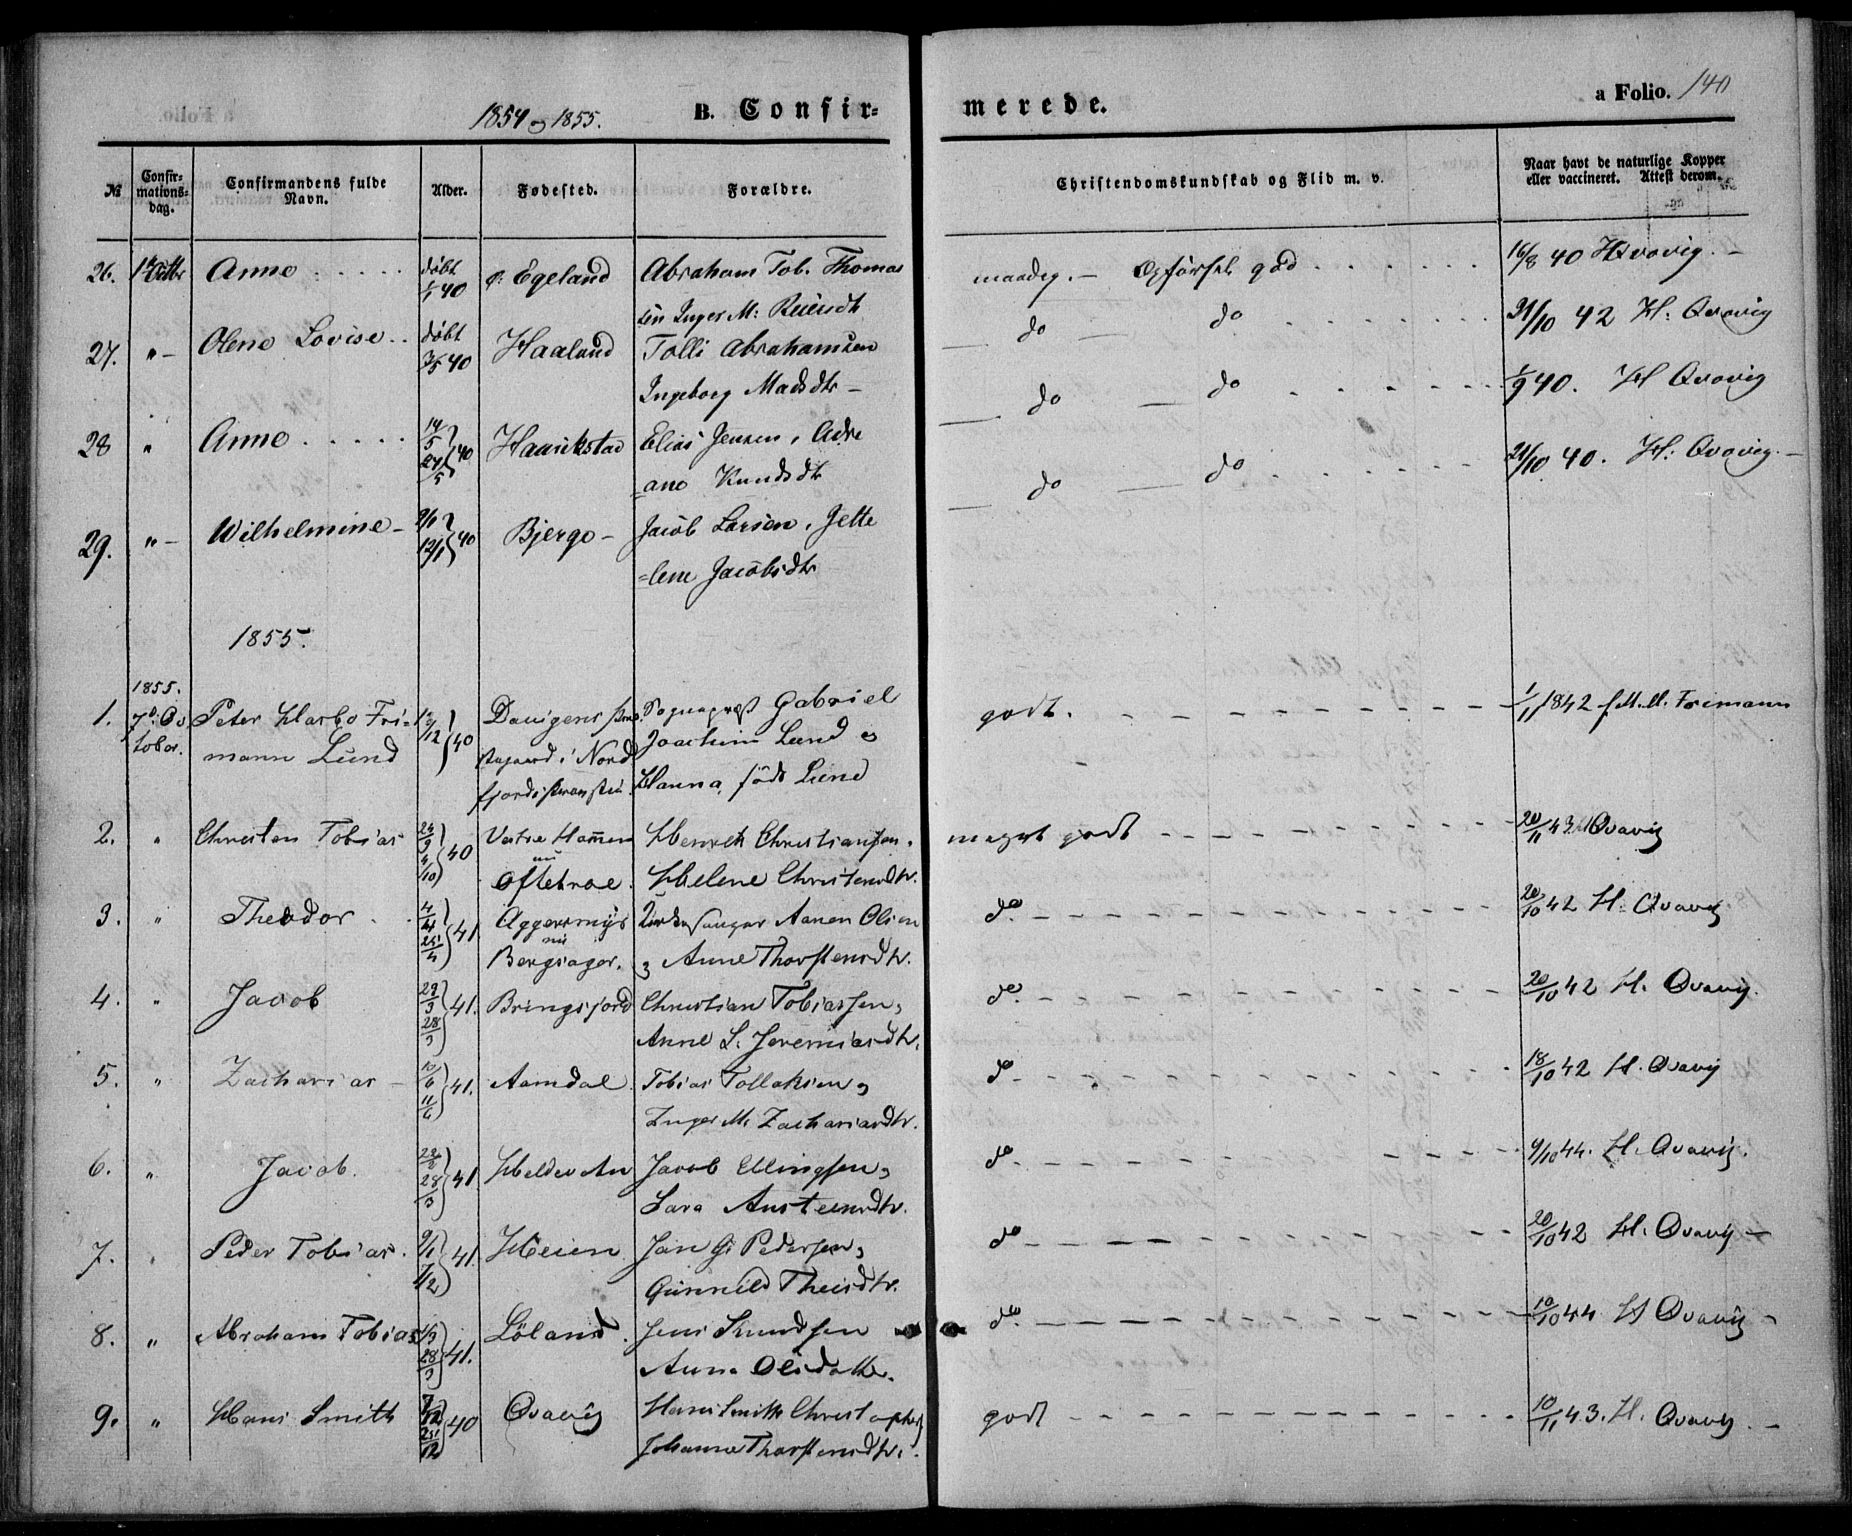 1854 og 1855. B. Confir-
merede.
a Folio. 140
№ Confir-mations-dag. Confirmandens fulde Navn. Alder. Fødested. Forældre. Christendomskundskab og Flid m. v. Naar havt de naturlige Kopper eller vaccineret. Attest derom.
26. 1 Octbr Anne døbt 1/1 40 Egeland Abraham Tob. Thomas maadeg. — Opførsel god 16/8 40 H Qvavig. —
sen Inger M:
27. " — Olene Lovise døbt 3/5 40 Haaland Tolli Abrahamsen do — do 21/10 42 H: Qvavig
Ingeborg Madsdtr —
28 " Anne 14/5 27/5 40 Haarikstad Elias Jensen, Adri do — do 1/9 40. H Qvavig
=ane Knudsdtr
29. " — Wilhelmine — 9/1 12/1 40 Bjerge — Jacob Larsen, Jette do — do 21/10 40. H: Qvavig. —
=lene Jacobsdtr
1855.
1855.
1. 7de Oc Peter Harbo Fri- 12/12 40 Davigens Præ Sognepræst Gabriel godt. 1/11 1842 f. M. M. Frimann
tober. mann Lund stegaard i Nord Joachim Lund og
fjords Hanna, født Lund
2. " Christen Tobias 24/9 4/10 40 Vestre Hamen Henrik Christiansen, meget godt 20/11 43 H Qvavig
nu
Oftebroe. Helene Christensdtr.
3. " Theodor 4/4 25/4 41. Aggersmyr Kirkesanger Aanen Olsen do 20/10 42 H. Qvavig
nu
Bergsager. og Anne Thorstensdtr.
4. " Jacob 23/3 28/3 41. Bringsjord Christian Tobiassen, do. 20/10 42 H. Qvavig.
Anne S. Jeremiasdtr.
5. " Zacharias — 10/6 11/6 41. Aamdal. Tobias Tollaksen og do 18/10 42 H. Qvavig
Inger M. Zachariasdtr.
6. " Jacob. 28/3 41. Jacob Ellingsen, do. 9/10 44. H. Qvavig.
Sara Austensdtr.
7. " Peder Tobias. 9/1 7/2 41. Heien Jan G. Pedersen, do 20/10 42 H. Qvavig —
Gunnild Theisdtr.
8. " Abraham Tobias 28/3 41. Løland. Jens Knudsen do. 10/10 44 H Qvavig —
Anne Olsdatter.
9. " Hans Smith 7/12 25/12 40 Qvavig Hans Smith Christophers godt 10/11 43. H. Qvavig. —
Johanne Thorstensdtr.